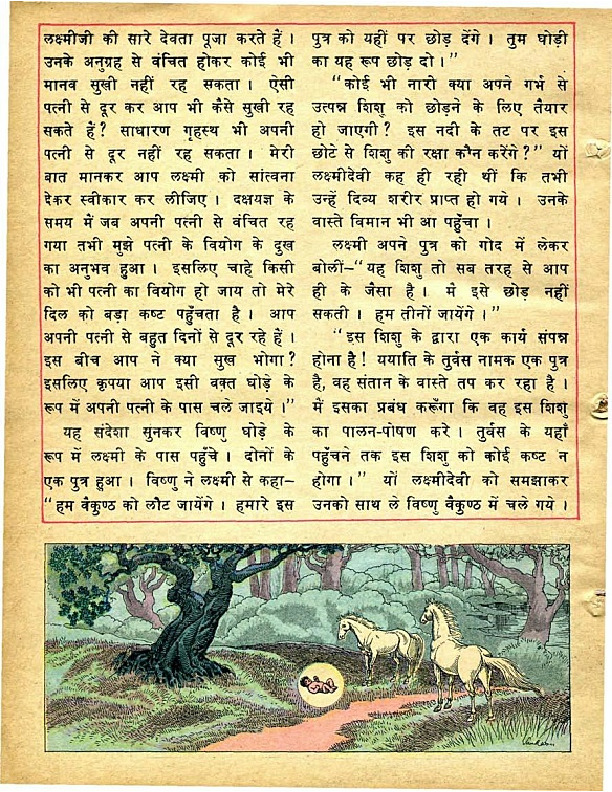 लक्ष्मीजी की सारे देवता पूजा करते हैं ।
उनके अनुग्रह से वंचित होकर कोई भी
मानव सुखी नहीं रह सकता । ऐसी
पत्नी से दूर कर आप भी कैसे सुखी रह
सकते हैं ? साधारण गृहस्थ भी अपनी
पत्नी से दूर नहीं रह सकता । मेरी
बात मानकर आप लक्ष्मी को सांत्वना
देकर स्वीकार कर लीजिए । दक्षयज्ञ के
समय में जब अपनी पत्नी से वंचित रह
गया तभी मुझे पत्नी के वियोग के दुख
का अनुभव हुआ । इसलिए चाहे किसी
को भी पत्नी का वियोग हो जाय तो मेरे
दिल को बड़ा कष्ट पहुँचता है । आप
अपनी पत्नी से बहुत दिनों से दूर रहे हैं ।
इस बीच आप ने क्या सुख भोगा ?
इसलिए कृपया आप इसी वक़्त घोड़े के
रूप में अपनी पत्नी के पास चले जाइये ।”
यह संदेशा सुनकर विष्णु घोड़े के
रूप में लक्ष्मी के पास पहुँचे । दोनों के
एक पुत्र हुआ । विष्णु ने लक्ष्मी से कहा–
“हम वैकुण्ठ को लौट जायेंगे । हमारे इस
पुत्र को यहीं पर छोड़ देंगे । तुम घोड़ी
का यह रूप छोड़ दो ।”
“कोई भी नारी क्या अपने गर्भ से
उत्पन्न शिशु को छोड़ने के लिए तैयार
हो जाएगी ? इस नदी के तट पर इस
छोटे से शिशु की रक्षा कौन करेंगे ?” यों
लक्ष्मीदेवी कह ही रही थीं कि तभी
उन्हें दिव्य शरीर प्राप्त हो गये । उनके
वास्ते विमान भी आ पहुँचा ।
लक्ष्मी अपने पुत्र को गोद में लेकर
बोलीं–“यह शिशु तो सब तरह से आप
ही के जैसा है । मैं इसे छोड़ नहीं
सकती । हम तीनों जायेंगे ।”
“इस शिशु के द्वारा एक कार्य संपन्न
होना है ! ययाति के तुर्वस नामक एक पुत्र
है, वह संतान के वास्ते तप कर रहा है ।
मैं इसका प्रबंध करूँगा कि वह इस शिशु
का पालन-पोषण करे । तुर्वस के यहाँ
पहुँचने तक इस शिशु को कोई कष्ट न
होगा ।” यों लक्ष्मीदेवी को समझाकर
उनको साथ ले विष्णु वैकुण्ठ में चले गये ।